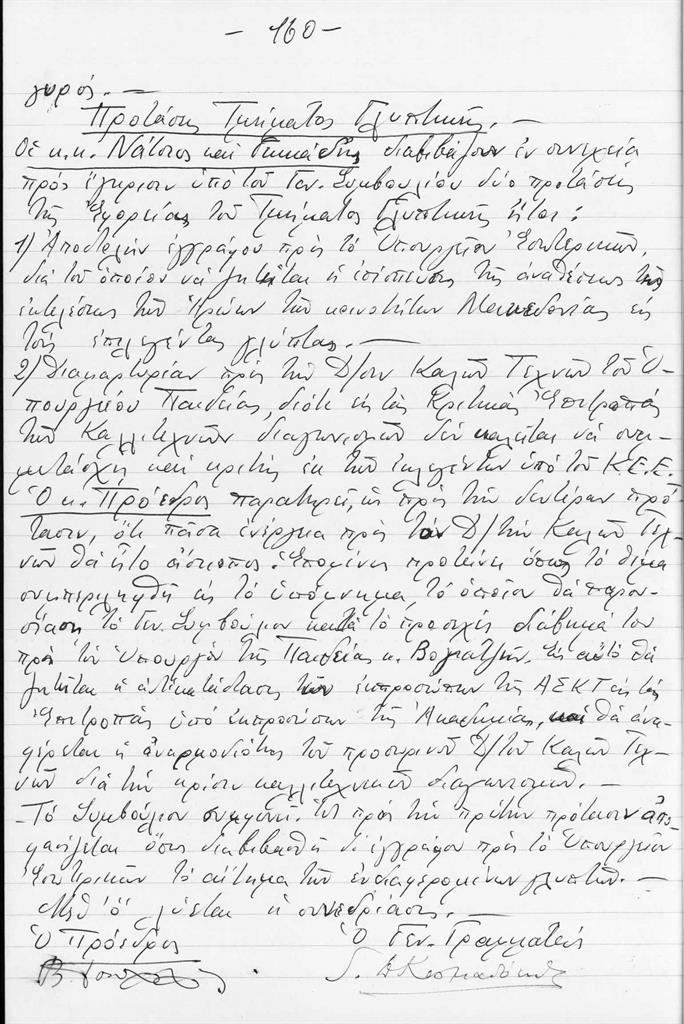 - 160 -
γυρός. —
Προτάσεις Τμήματος Γλυπτικής. —
Οἱ κ.κ. Νάτσιος καὶ διαβιβάζουν ἐν συνεχείᾳ
πρὸς ἔγκρισιν ὑπὸ τοῦ Γεν. Συμβουλίου δύο προτάσεις
τῆς Ἐφορείας τοῦ Τμήματος Γλυπτικῆς ἤτοι:
1) Ἀποστολὴν ἐγγράφου πρὸς τὸ Ὑπουργεῖον Ἐσωτερικῶν,
διὰ τοῦ ὁποίου νὰ ζητῆται ἡ ἐπίσπευσις τῆς ἀναθέσεως τῆς
ἐκτελέσεως τῶν Ἡρώων τῶν κοινοτήτων Μακεδονίας εἰς
τοὺς ἐπιλεγέντας γλύπτας. —
2) Διαμαρτυρίαν πρὸς τὴν Δ/σιν Καλῶν Τεχνῶν τοῦ Ὑ-
πουργείου Παιδείας, διότι εἰς τὰς Κριτικὰς Ἐπιτροπὰς
τῶν Καλλιτεχνικῶν διαγωνισμῶν δὲν καλεῖται νὰ συμ-
μετάσχῃ καὶ κριτὴς ἐκ τῶν ἐκλεγέντων ὑπὸ τοῦ Κ.Ε.Ε.
Ὁ κ. Πρόεδρος παρατηρεῖ, ὡς πρὸς τὴν δευτέραν πρό-
τασιν, ὅτι πᾶσα ἐνέργεια πρὸς τὸν Δ/τὴν Καλῶν Τεχ-
νῶν θὰ ἦτο ἄσκοπος. Ἑπομένως προτείνει ὅπως τὸ θέμα
συμπεριληφθῇ εἰς τὸ ὑπόμνημα, τὸ ὁποῖον θὰ παρου-
σιάσῃ τὸ Γεν. Συμβούλιον κατὰ τὸ προσεχὲς διάβημά του
πρὸς τὸν Ὑπουργὸν τῆς Παιδείας κ. Βογιατζῆν. Εἰς αὐτὸ θὰ
ζητῆται ἡ ἀντικατάστασις τῶν ἐκπροσώπων τῆς ΑΣΚΤ εἰς τὰς
Ἐπιτροπὰς ὑπὸ ἐκπροσώπων τῆς Ἀκαδημίας, καὶ θὰ ἀνα-
φέρεται ἡ ἀναρμοδιότης τοῦ προσωρινοῦ Δ/τοῦ Καλῶν Τεχ-
νῶν διὰ τὴν κρίσιν καλλιτεχνικῶν διαγωνισμῶν. —
- Τὸ Συμβούλιον συμφωνεῖ. Ὡς πρὸς τὴν πρώτην πρότασιν ἀπο-
φασίζεται ὅπως διαβιβασθῇ δι' ἐγγράφου πρὸς τὸ Ὑπουργεῖον
Ἐσωτερικῶν τὸ αἴτημα τῶν ἐνδιαφερομένων γλυπτῶν. —
Μεθ' ὃ λύεται ἡ συνεδρίασις. —
Ὁ Πρόεδρος Ὁ Γεν. Γραμματεύς